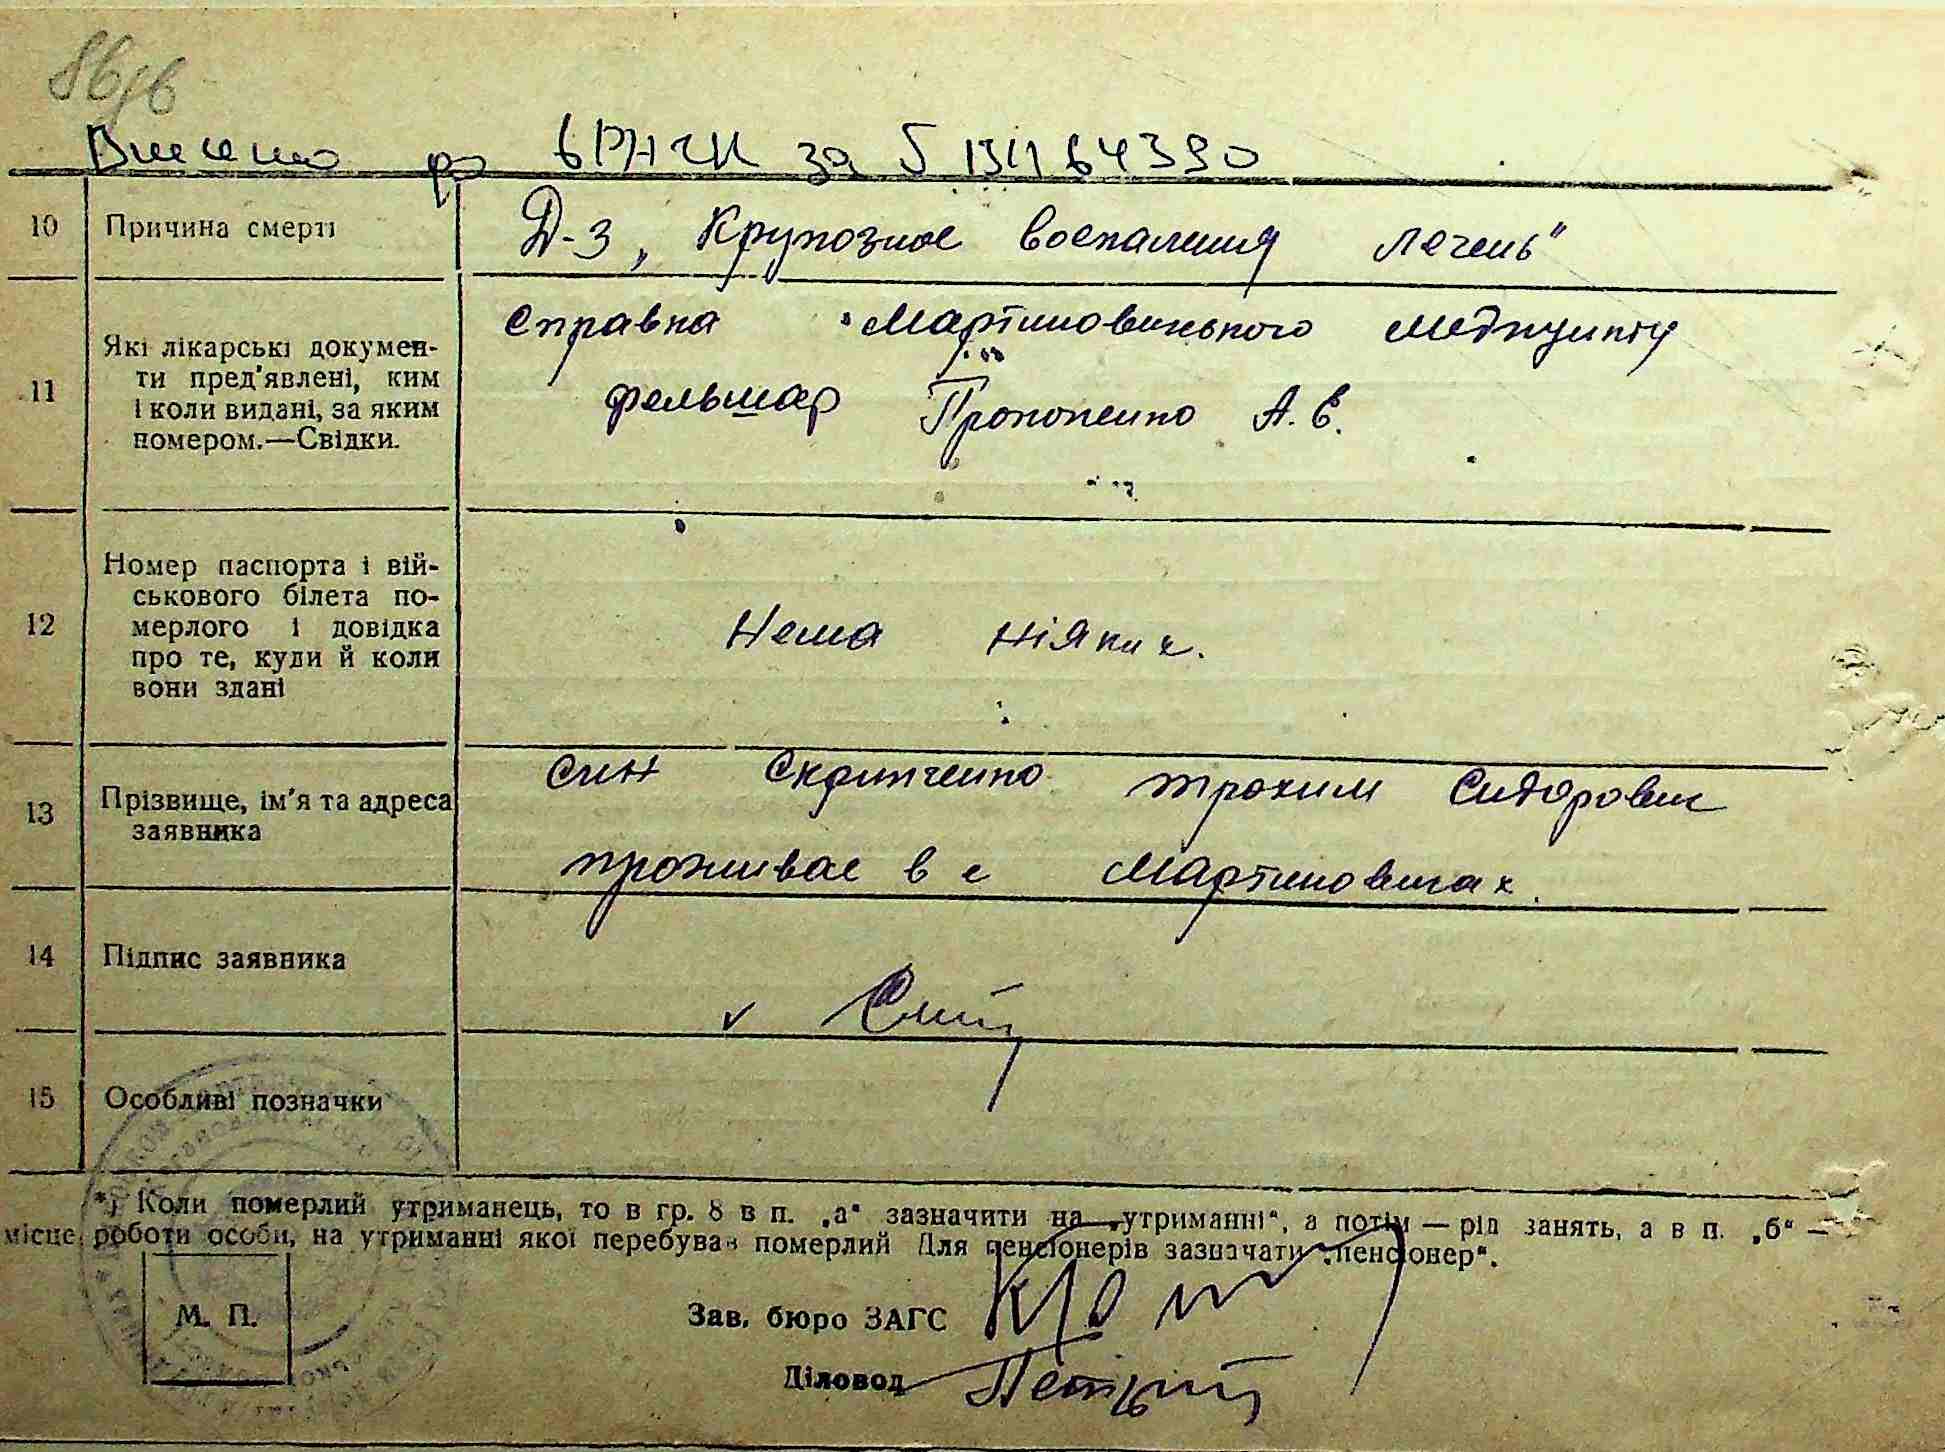 Внесено до ЄРНЧК за
10 Причина смерті Д-з „Крупозное воспаления лечень"
11 Які лікарські докумен-
ти пред'явлені, ким
і коли видані, за яким
номером.—Свідки.
справка Мартиновицького медпункту
фельшар Прокопенко А. Є.
12 Номер паспорта і вій-
ськового білета по-
мерлого і довідка
про те, куди й коли
вони здані
Нема ніяких.
13 Прізвище, ім'я та адреса
заявника
син Скрипченко Трохим Сидорович
проживає в с Мартиновичах.
14 Підпис заявника
15 Особливі позначки
*) Коли померлий утриманець, то в гр. 8 в п. „а" зазначити на „утриманні", а потім — рід занять, а в п. „б" —
місце роботи особи, на утриманні якої перебував померлий Для пенсіонерів зазначати „пенсіонер".
М. П.
Зав. бюро ЗАГС
Діловод